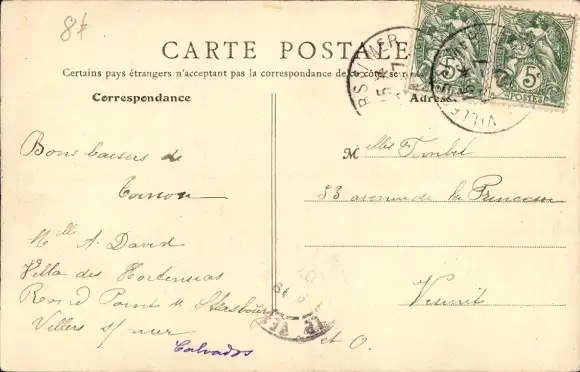 8f
CARTE POSTALE
Certains pays étrangers n'acceptant pas la correspondance de ce côté se
Correspondance
Adresse
Bons baisers de
Mlle A. David
Villa des Hortensias
Rond Point de Strasbourg
Villers s/ mer
Calvados
Melles
53 avenue de la Princesse
Vésinet
et O.
5c
POSTES
5c
POSTES
RS SUR MER
VILLERS
LE VE